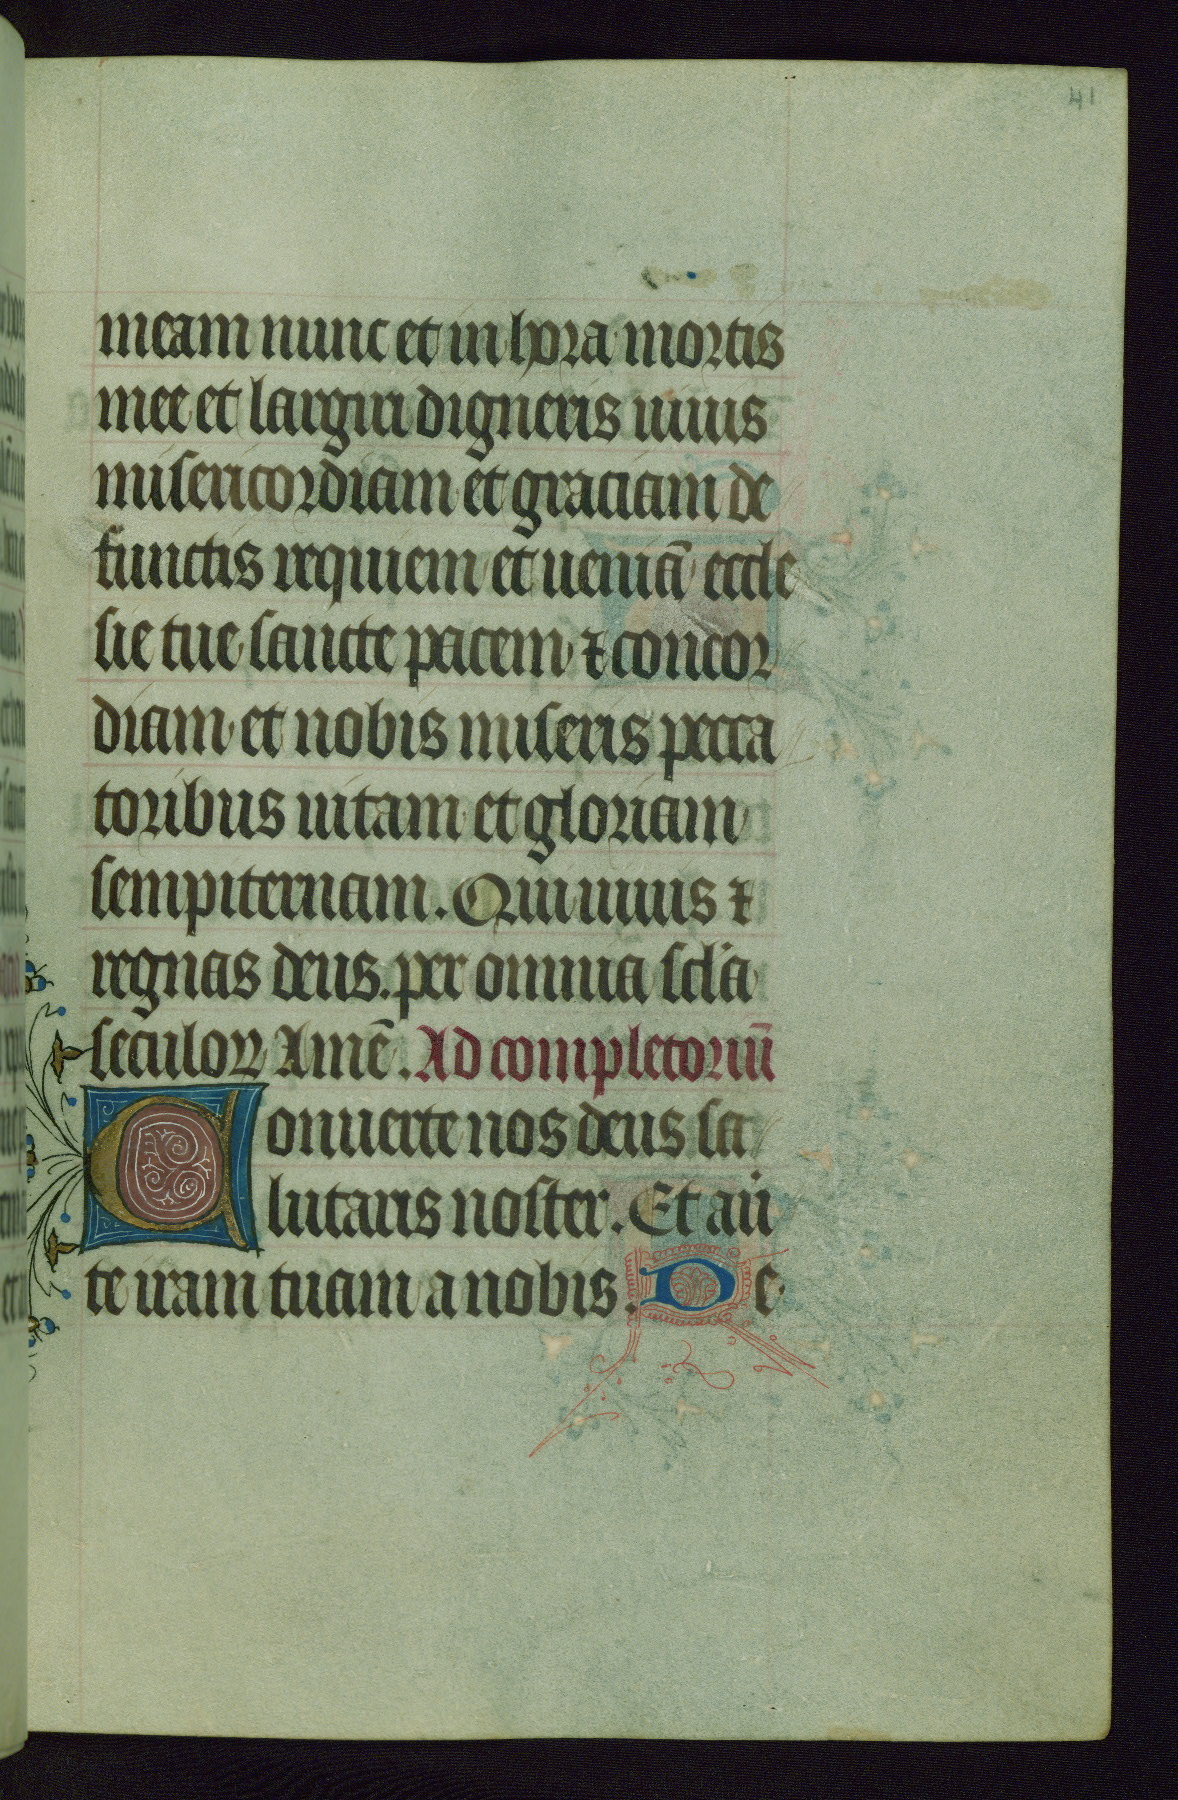 41
meam nunc et in hora mortis
mee et largiri digneris uiuis
misericordiam et graciam de
functis requiem et ueniā eccle
sie tue sancte pacem ⁊ concor
diam et nobis miseris pecca
toribus uitam et gloriam
sempiternam. Qui uiuis ⁊
regnas deus. per omnia scl'a
seculoꝝ Amē. Ad completoriū
Conuerte nos deus sa
lutaris noster. Et auer
te iram tuam a nobis. De